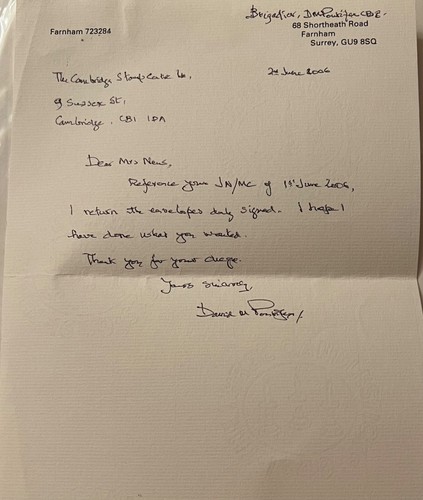 Farnham 723284
Brigadier, D M Pontifex CBE.
68 Shortheath Road
Farnham
Surrey, GU9 8SQ
2nd June 2006
The Cambridge Stamp Centre Ltd,
9 Sussex St,
Cambridge, CB1 1DA
Dear Mrs News,
Reference your JN/MC of 1st June 2006,
I return the envelopes duly signed. I hope I
have done what you wanted.
Thank you for your cheque.
Yours sincerely,
David M Pontifex